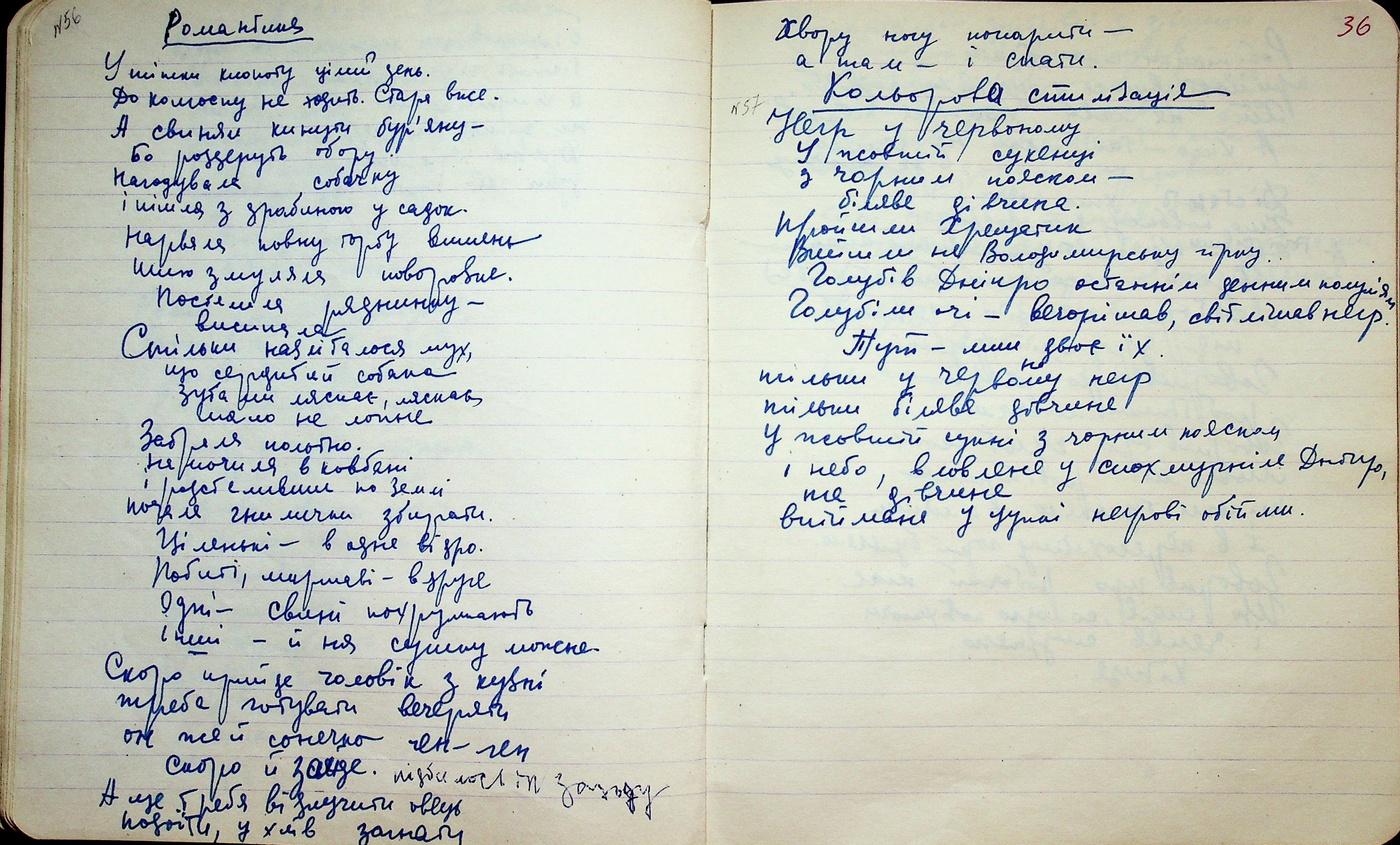 №56
Романтика
У тітки клопоту цілий день.
До колгоспу не ходить. Стара вже.
А свиням кинути бур'яну—
бо роздеруть обору.
Нагодувала собачку
і пішла з драбиною у садок.
Нарвала повну торбу вишень
шию змуляла поворозка.
Постелила ряднинку—
висипала
Стільки назліталося мух,
що сердитий собака
зубами ляскав, ляскав
мало не лопне
Забрала полотно.
Намочила в ковбані
і розстеливши по землі
почала гнилички збирати.
Ціленькі — в одне відро.
Побиті, миршаві — в друге
Одні — свині похрумають
інші — й на сушку можна
Скоро прийде чоловік з кузні
треба готувати вечеряти
он же й сонечко ген-ген
скоро й зайде. підбилось ік заходу
А ще треба відлучити овець
подоїти, у хлів загнати
36
Хвору ногу попарити —
а там — і спати.
№57
Кольорова стилізація
Негр у червоному
У жовтій сукенці
з чорним пояском —
білява дівчина.
Пройшли Хрещатик
Вийшли на Володимирську гірку..
Голубів Дніпро останнім денним полум'ям
Голубіли очі — вечорішав, світлішав негр.
Тут — лиш двоє їх.
тільки у червоному негр
тільки білява дівчина
У жовтій сукні з чорним пояском
і небо, вловлене у спохмурніле Дніпро,
та дівчина
впіймана у цупкі негрові обійми.